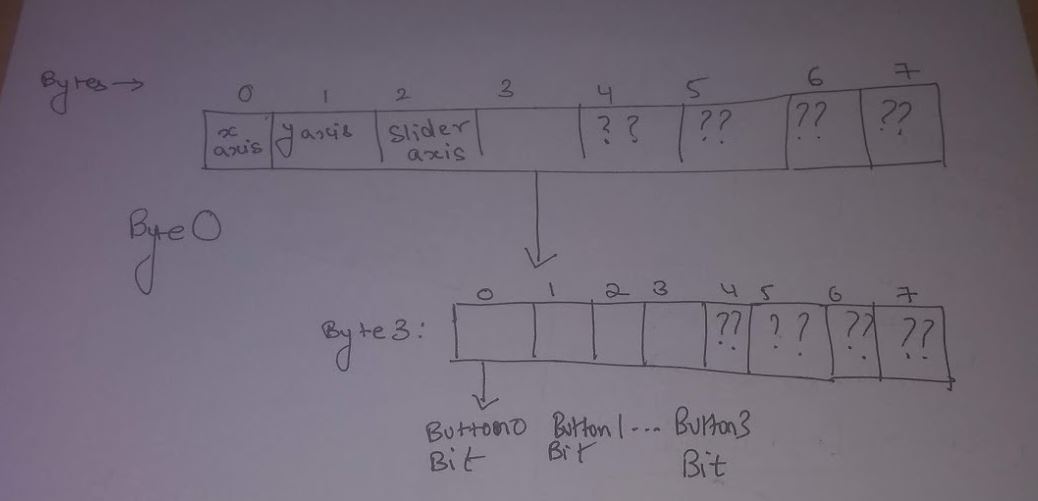 Bytes →
0 1 2 3 4 5 6 7
x axis y axis slider axis ?? ?? ?? ??
Byte 0
0 1 2 3 4 5 6 7
Byte 3: ?? ?? ?? ??
Button 0 Button 1 --- Button 3
Bit Bit Bit